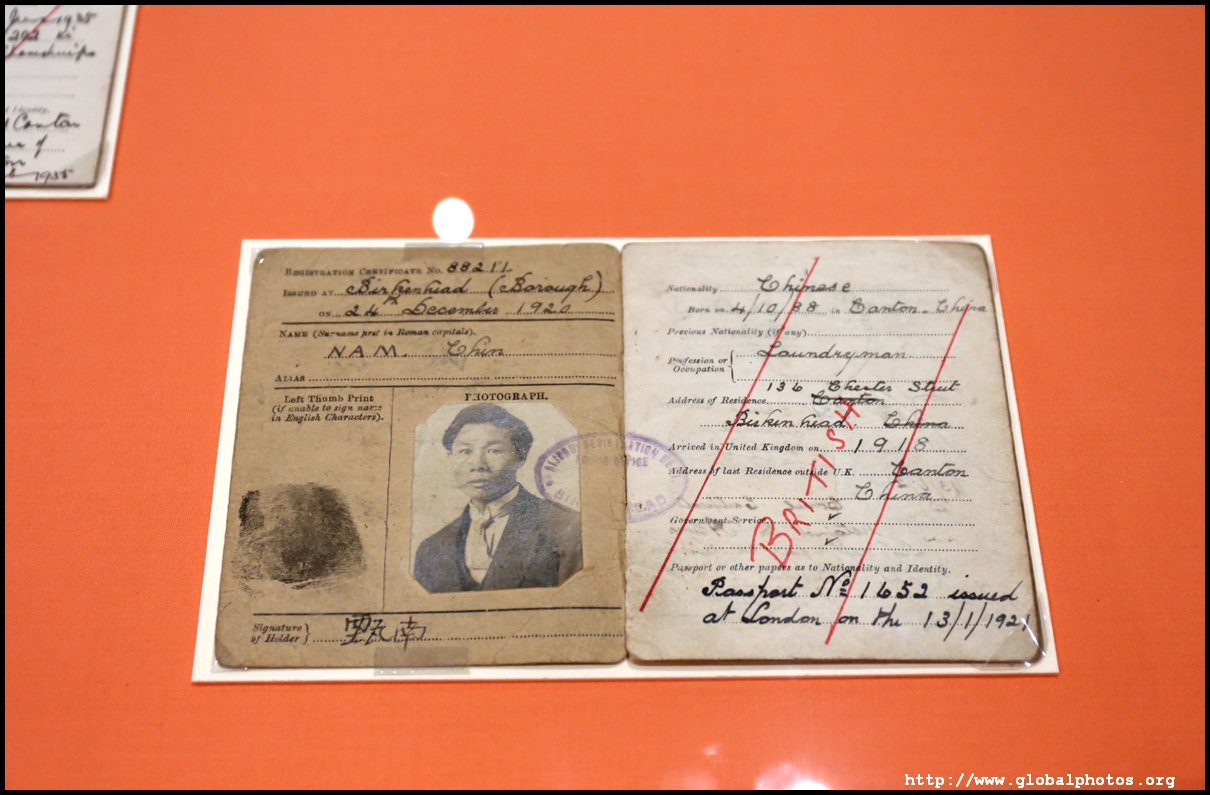 June 1935
292
REGISTRATION CERTIFICATE NO. 88211
ISSUED AT Birkenhead (Borough)
ON 24th December 1920
NAME (Surname first in Roman capitals).
NAM. Chin
ALIAS
Left Thumb Print
(if unable to sign name
in English Characters).
PHOTOGRAPH.
Signature
of Holder
南
ALIENS REGISTRATION
OFFICE
Nationality Chinese
Born on 4/10/88 in Canton. China
Previous Nationality (if any)
Profession or
Occupation
Laundryman
136 Chester Street
Address of Residence. Canton
Birkenhead. China
Arrived in United Kingdom on 1918
Address of last Residence outside U.K. Canton
China
Government Service.
Passport or other papers as to Nationality and Identity.
Passport No 1652 issued
at London on the 13/1/1921
BRITISH
http://www.globalphotos.org